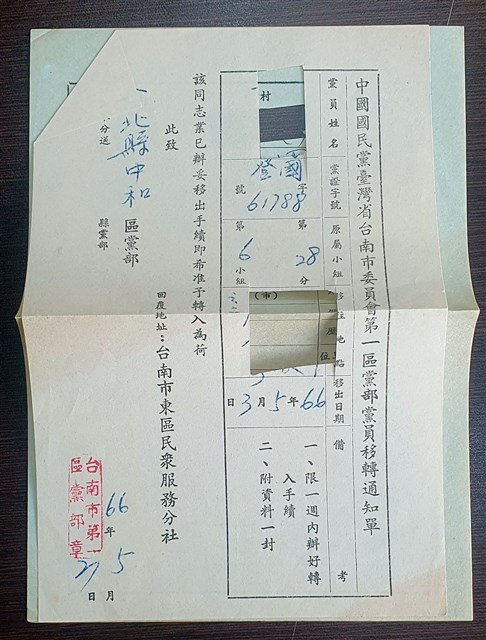 中國國民黨臺灣省台南市委員會第一區黨部黨員移轉通知單
黨員姓名
黨證字號
國登字
61788號
原屬小組
第28分
第6小組
移
點
(市)
村
位
移出日期
66年5月3日
備考
一、限一週內辦好轉
入手續
二、附資料一封
該同志業已辦妥移出手續即希准予轉入為荷
此致
北縣中和區黨部
分送
縣黨部
回覆地址：台南市東區民衆服務分社
台南市第一
區黨部章
66年5月
日